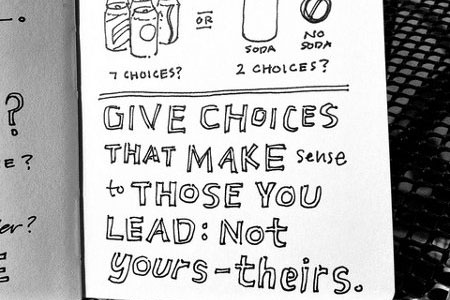 OR
SODA
NO
SODA
7 CHOICES?
2 CHOICES?
GIVE CHOICES
THAT MAKE sense
to THOSE YOU
LEAD: Not
yours-theirs.
?
?
?